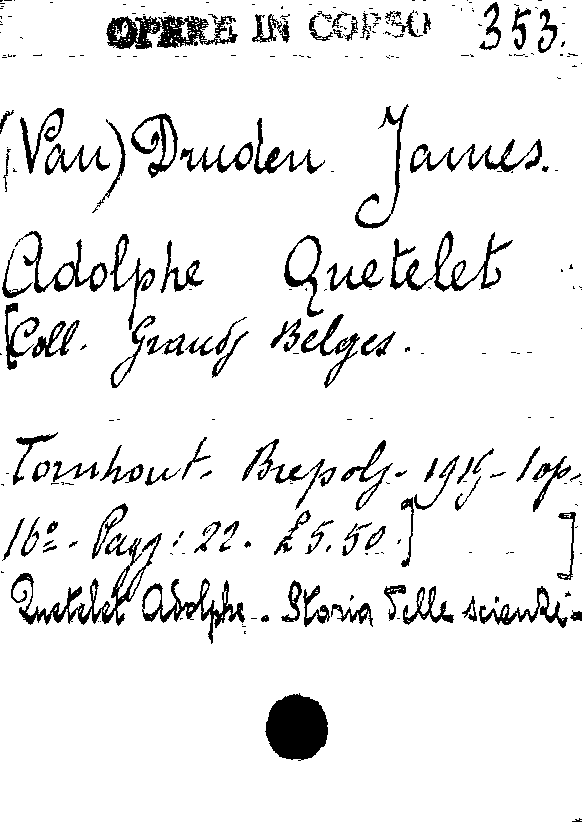 OPERE IN CORSO 353.
(Van) Druden James.
Adolphe Quetelet
[Coll. Grands Belges.
Tornhout. Brepols - 1919 - 1 op.
16º - Pagg: 22. £ 5.50.] ]
Quetelet Adolphe. Storia delle scienze -